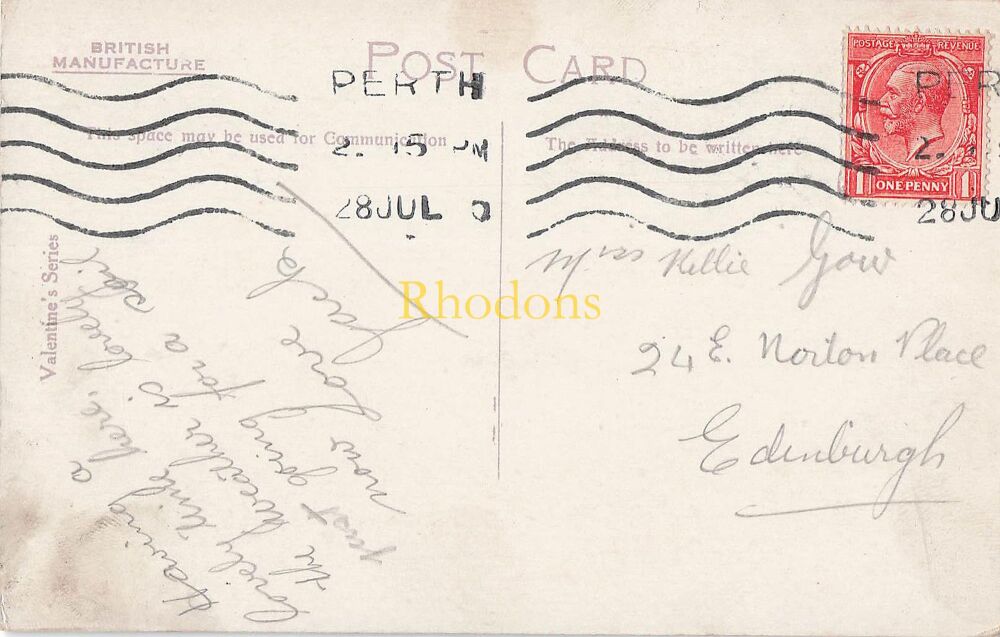 BRITISH
MANUFACTURE
POST CARD
This space may be used for Communication
The Address to be written here
PERTH
2. 15 PM
28 JUL
PER
2.
28 JU
POSTAGE REVENUE
1 ONE PENNY 1
Valentine's Series
Having a
lovely time here, lovely
the weather is
just going for a sail
now Love
Jack
Rhodons
Miss Nellie Gow
24 E. Norton Place
Edinburgh